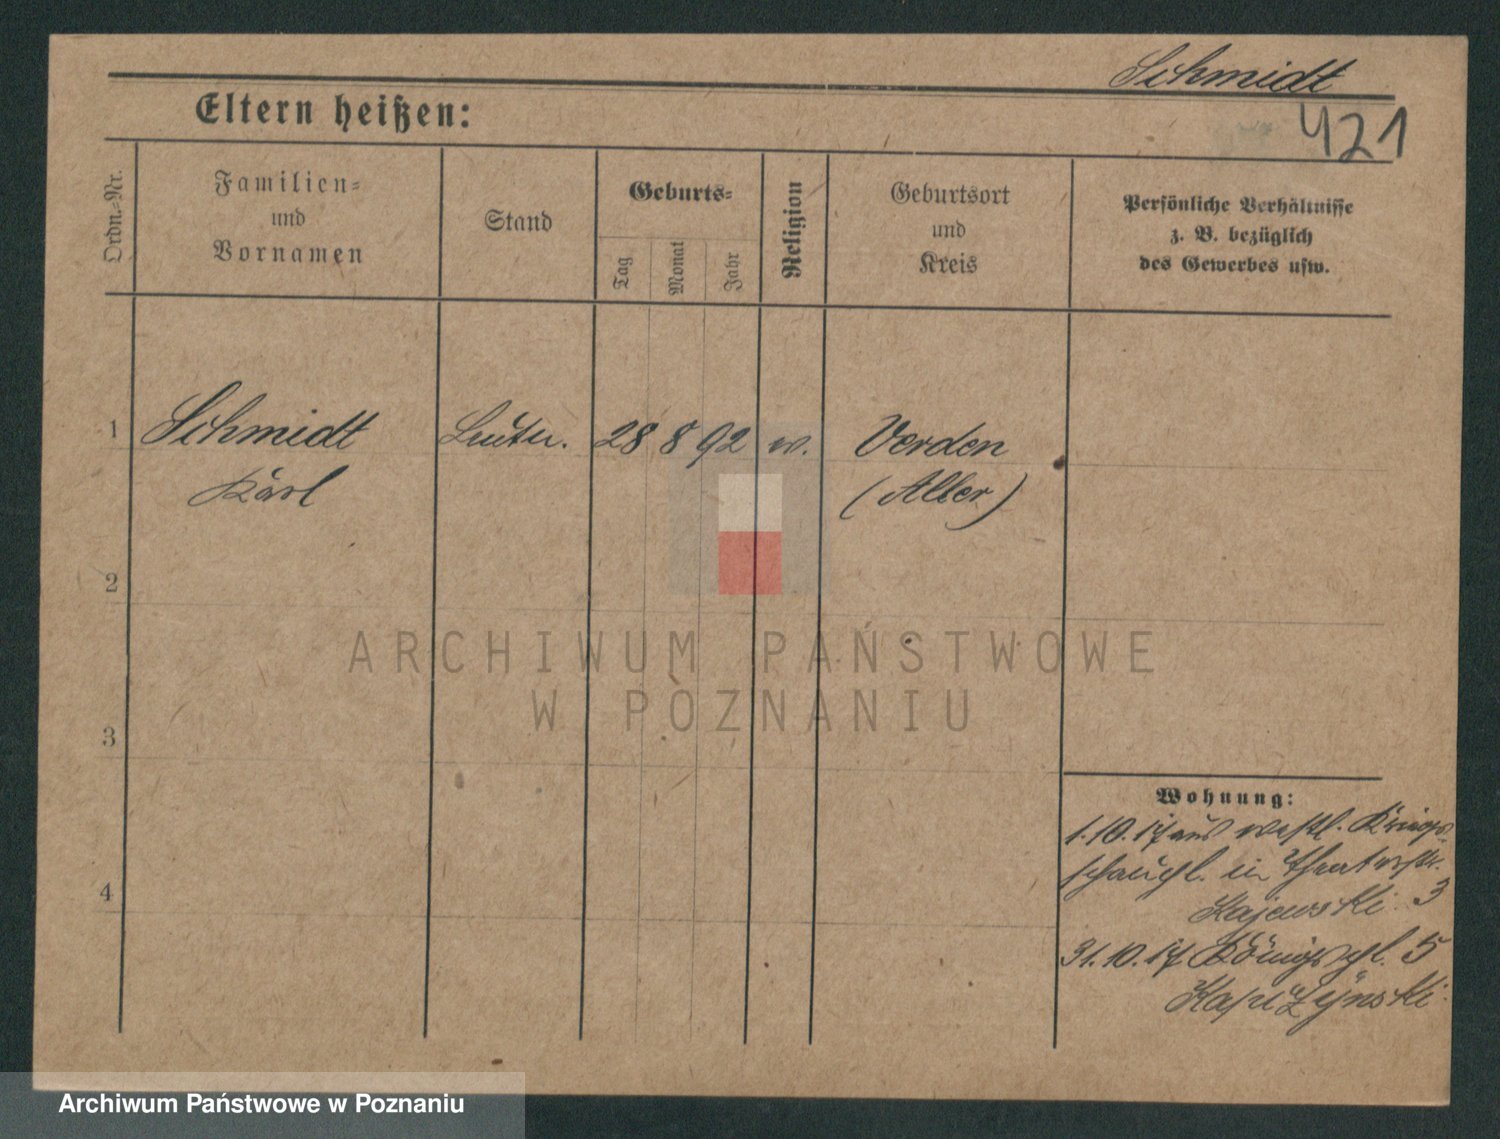 Schmidt
421
Eltern heißen:
Ordn.-Nr.
Familien-
und
Vornamen
Stand
Geburts-
Tag
Monat
Jahr
Religion
Geburtsort
und
Kreis
Persönliche Verhältnisse
z. B. bezüglich
des Gewerbes usw.
1 Schmidt Leutn. 28 8 92 Verden
Karl (Aller)
2
3
4
ARCHIWUM PAŃSTWOWE
W POZNANIU
Wohnung:
1.10.17 aus
in Theaterstr.
Kajewski 3
31.10.17 Königspl. 5
Archiwum Państwowe w Poznaniu